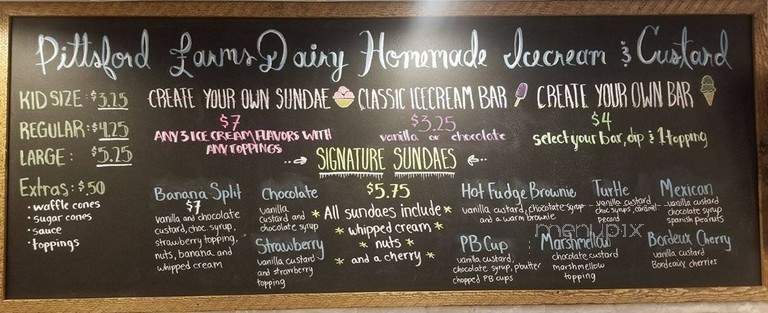 Pittsford Farms Dairy Homemade Icecream & Custard
KID SIZE: $3.25
REGULAR: $4.25
LARGE: $5.25
Extras: $.50
• waffle cones
• sugar cones
• sauce
• toppings
CREATE YOUR OWN SUNDAE
$7
ANY 3 ICE CREAM FLAVORS WITH
ANY TOPPINGS
CLASSIC ICECREAM BAR
$3.25
vanilla or chocolate
CREATE YOUR OWN BAR
$4
select your bar, dip & 1 topping
SIGNATURE SUNDAES
$5.75
* All sundaes include *
* whipped cream *
* nuts *
* and a cherry *
Banana Split
$7
vanilla and chocolate
custard, choc. syrup,
strawberry topping,
nuts, banana, and
whipped cream
Chocolate
vanilla
custard and
chocolate syrup
Strawberry
vanilla custard
and strawberry
topping
Hot Fudge Brownie
vanilla custard, chocolate syrup
and a warm brownie
PB Cup
vanilla custard,
chocolate syrup, pbutter
chopped PB cups
Turtle
vanilla custard
choc syrup, caramel
pecans
Marshmellow
chocolate custard
marshmellow
topping
Mexican
vanilla custard
chocolate syrup
spanish peanuts
Bordeux Cherry
vanilla custard
Bordeaux cherries
menupix